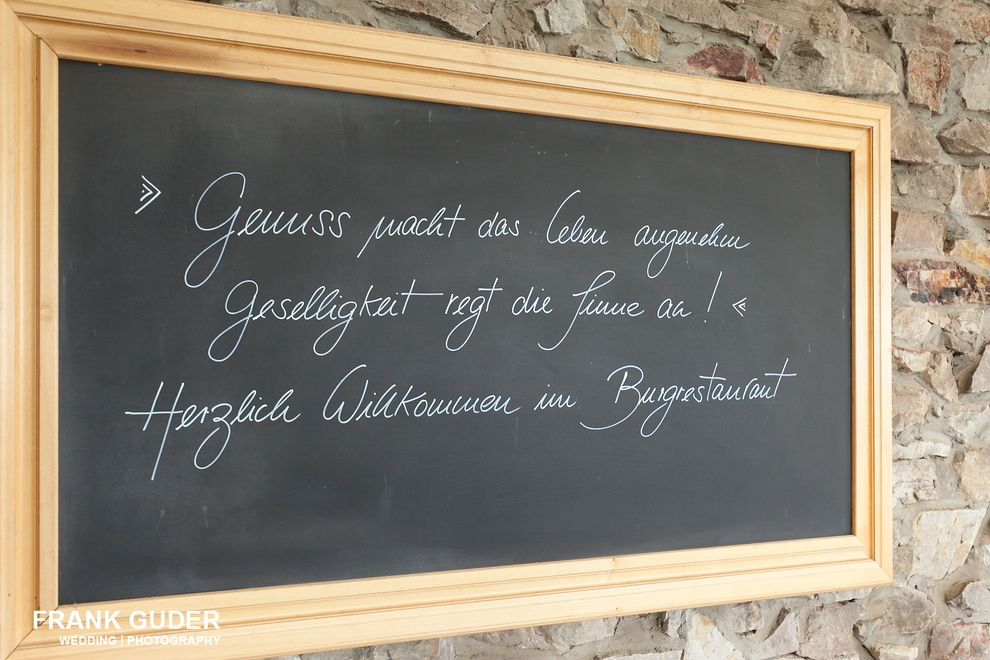 » Genuss macht das Leben angenehm
Geselligkeit regt die Sinne an! «
Herzlich Willkommen im Burgrestaurant
FRANK GUDER
WEDDING | PHOTOGRAPHY